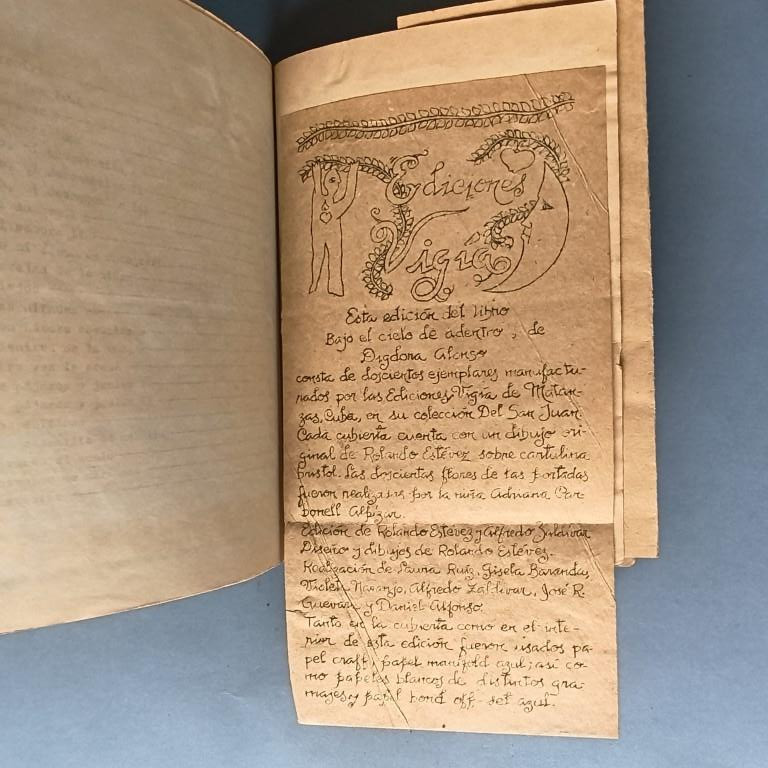 Ediciones
Vigía
Esta edición del libro
Bajo el cielo de adentro, de
Digdora Alonso
consta de doscientos ejemplares manufactu-
rados por las Ediciones Vigía de Matan-
zas, Cuba, en su colección Del San Juan.
Cada cubierta cuenta con un dibujo ori-
ginal de Rolando Estévez sobre cartulina
bristol. Las doscientas flores de las portadas
fueron realizadas por la niña Adriana Car-
bonell Alpízar.
Edición de Rolando Estévez y Alfredo Zaldívar
Diseño y dibujos de Rolando Estévez.
Realización de Laura Ruiz, Gisela Baranda,
Violet Naranjo, Alfredo Zaldívar, José R.
Guevara y Daniel Alfonso.
Tanto en la cubierta como en el inte-
rior de esta edición fueron usados pa-
pel craft, papel manifold azul; así co-
mo papeles blancos de distintos gra-
majes y papel bond off-set azul.